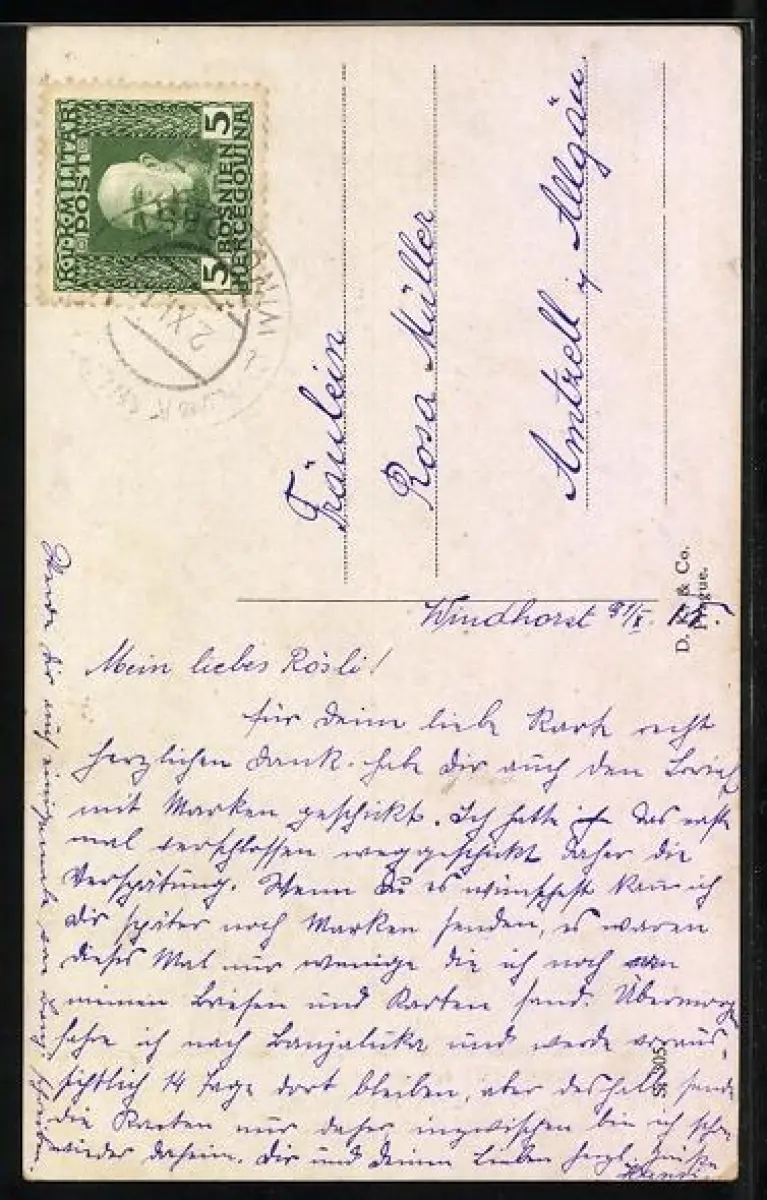 K.u.K. MILITÄR
POST
5 BOSNIEN 5
HERCEGOVINA
Fräulein
Rosa Müller
Amtzell i/ Allgäu.
D. & Co.
Prague.
Windhorst /X.
Mein liebes Rösli!
für Deine liebe Karte recht
herzlichen Dank. habe Dir auch den Brief
mit Marken geschickt. Ich hatte das erste
mal verschlossen weggeschickt daher die
Verspätung. Wenn Du es wünschest kann ich
Dir später noch Marken senden, es waren
dieses Mal nur wenige die ich noch an
meinen Briefen und Karten fand. Übermorgen
fahre ich nach Banjaluka und werde voraus-
sichtlich 14 Tage dort bleiben, aber deshalb sende
die Karten nur daher inzwischen bin ich schon
wieder daheim. Dir und Deinen Lieben herzl. Grüße
Werde Dir auch einigemale von dort schreiben.